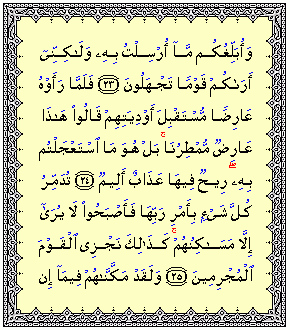 وَأُبَلِّغُكُم مَّآ أُرْسِلْتُ بِهِۦ وَلَـٰكِنِّىٓ
أَرَىٰكُمْ قَوْمًا تَجْهَلُونَ ﴿٢٣﴾ فَلَمَّا رَأَوْهُ
عَارِضًا مُّسْتَقْبِلَ أَوْدِيَتِهِمْ قَالُوا۟ هَـٰذَا
عَارِضٌ مُّمْطِرُنَا ۚ بَلْ هُوَ مَا ٱسْتَعْجَلْتُم
بِهِۦ ۖ رِيحٌ فِيهَا عَذَابٌ أَلِيمٌ ﴿٢٤﴾ تُدَمِّرُ
كُلَّ شَىْءٍۭ بِأَمْرِ رَبِّهَا فَأَصْبَحُوا۟ لَا يُرَىٰٓ
إِلَّا مَسَـٰكِنُهُمْ ۚ كَذَٰلِكَ نَجْزِى ٱلْقَوْمَ
ٱلْمُجْرِمِينَ ﴿٢٥﴾ وَلَقَدْ مَكَّنَّـٰهُمْ فِيمَآ إِن